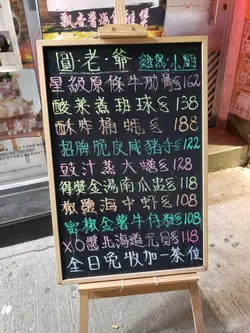 飄香醬汲
圓·老·爺 雞煲小厨
星級原條牛肋骨$162
酸菜煮斑球$138
酥炸桶蚝$188
招牌脆皮咸豬手$122
豉汁蒸大鱔$128
得獎金湯南瓜盅$118
椒鹽海中蝦$108
蜜椒金薯牛仔粒$108
XO醬北海道元貝$118
全日免收加一茶位